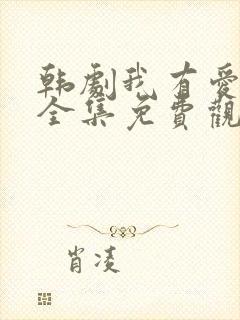 韩劇我有爱
全集免費觀
肖凌